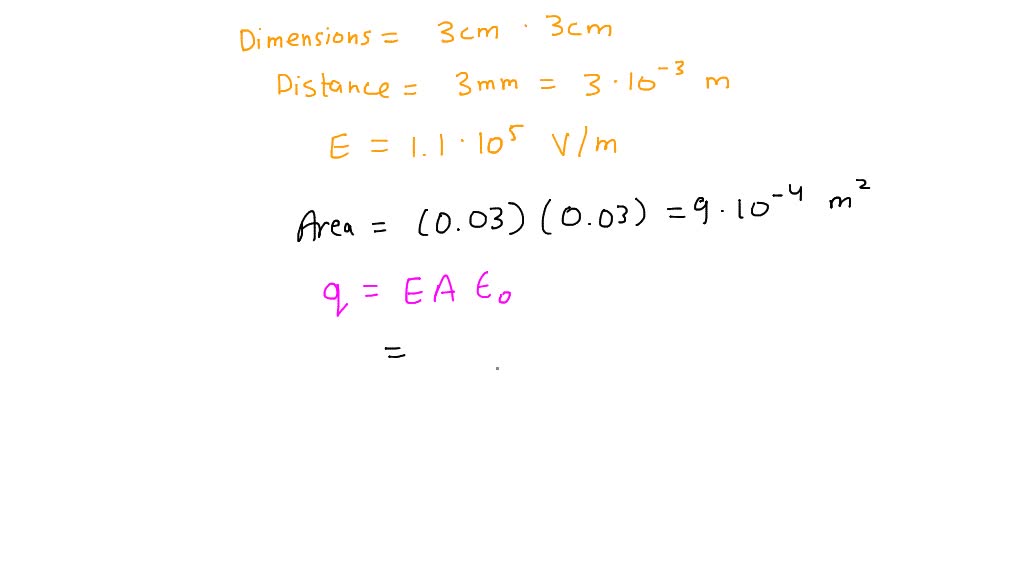 Dimensions = 3cm · 3cm
Distance = 3mm = 3·10⁻³ m
E = 1.1·10⁵ V/m
Area = (0.03)(0.03) = 9·10⁻⁴ m²
q = EA ϵ₀
=